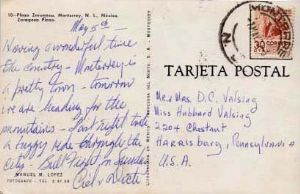 10.-Plaza Zaragoza, Monterrey, N. L., Mexico.
Zaragoza Plaza.
May 5th
Having a wonderful time
The country - Monterrey is
a pretty town - tomorrow
we are heading for the
mountains - Last night took
a buggy ride through the
city - Bull Fight on Sunday
MANUEL M. LOPEZ
TARJETA POSTAL
Mr & Mrs. D.C. Valsing
Miss Hubbard Valsing
2204 Chestnut
Harrisburg, Pennsylvania
U.S.A.